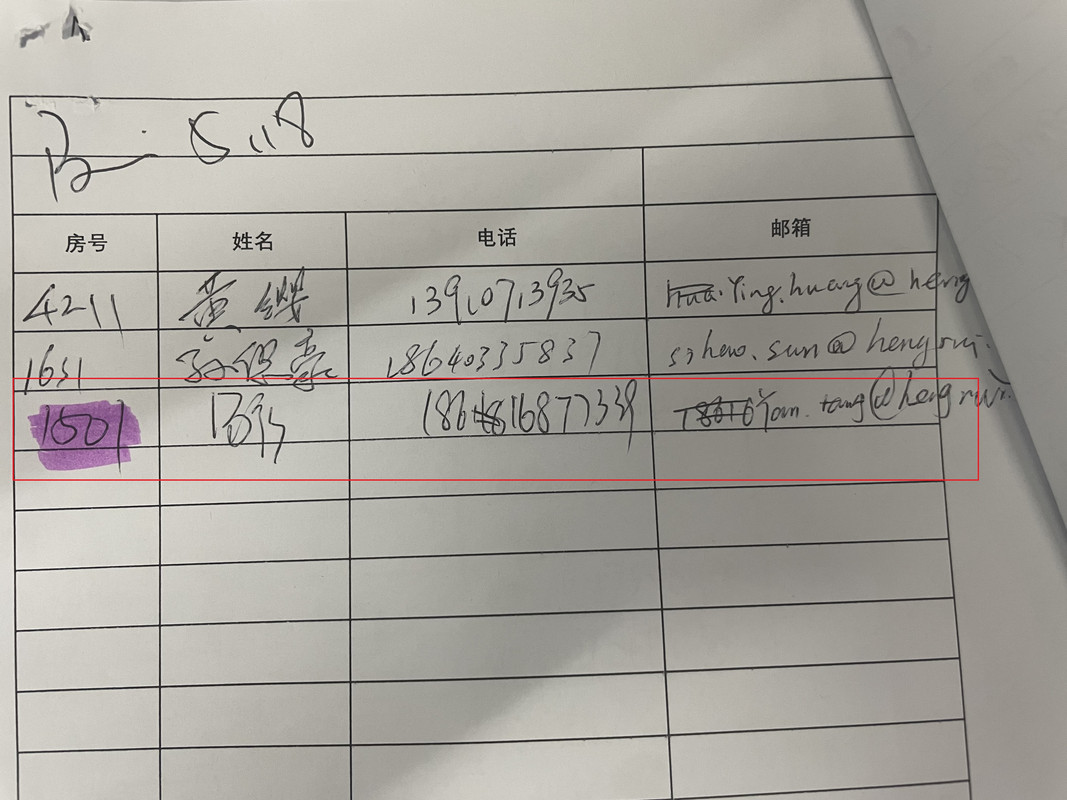 5.18
房号 姓名 电话 邮箱
4211 黄缨 13910713935 Ying.huang@heng
1631 孙 18640335837 sihao.sun@hengrui.
1501 18616877339 Yan.tang@hengrui.